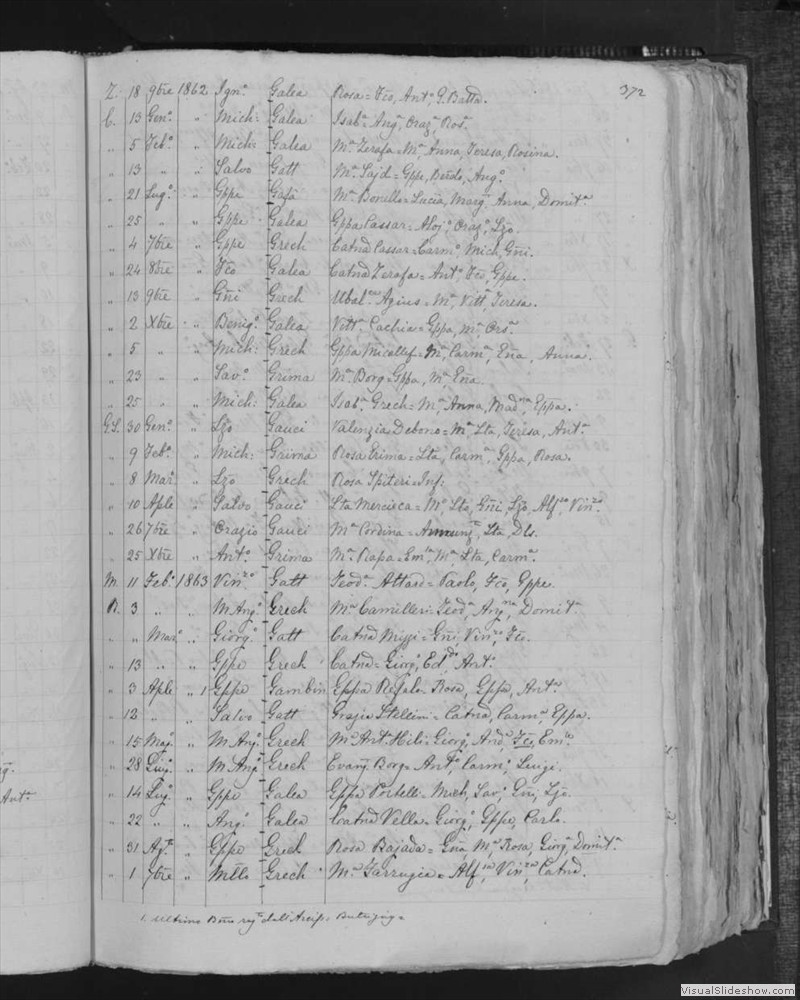 372
Z. 18 9bre 1862 Ign.o Galea Rosa = Fco, Ant.o G. Batta.
C. 13 Gen.o " Mich: Galea Isab.a Ang.o, Oraz.o Ros.a
" 5 Feb.o " Mich: Galea M.a Zerafa = M.a Anna, Teresa, Rosina.
" 13 " " Salvo Gatt M.a Sajd = Gppe, Ang.o
" 21 Lug.o " Gppe Gafà M.a Bonello = Lucia, Marg.a Anna, Domit.a
" 25 " " Gppe Galea Gppa Cassar = Aloj.o Oraz.o, Lzo.
" 4 7bre " Gppe Grech Catna Cassar = Carm.o Mich, Gñi.
" 24 8bre " Fco Galea Catna Zerafa = Ant.o Fco, Gppe.
" 13 9bre " Gñi Grech Ubal.ca Agius = M.a Vitt.a Teresa.
" 2 Xbre " Benig.o Galea Vitt.a Cachia = Gppa, M.a Ors.a
" 5 " " Mich: Grech Gppa Micallef = M.a Carm.a, Eña, Anna.
" 23 " " Sav.o Grima M.a Borg = Gppa, M.a Eña.
" 25 " " Mich: Galea Isab.a Grech = M.a Anna, Mad.na, Eppa.
G.S. 30 Gen.o " Lzo Gauci Valenzia Debono = M.a Lta, Teresa, Ant.a
" 9 Feb.o " Mich: Grima Rosa Grima = Lta, Carm.a Gppa, Rosa.
" 8 Mar.o " Lzo Grech Rosa Spiteri = Inf:
" 10 Aple " Salvo Gauci Lta Mercieca = M.a Lta, Gñi, Lzo, Alf.so, Vin.zo
" 26 7bre " Orazio Gauci M.a Cordina = Annunz.a, Lta, Dls.
" 25 Xbre " Ant.o Grima M.a Rapa = Em.la, M.a Lta, Carm.a
M. 11 Feb.o 1863 Vin.zo Gatt Teod.a Attard = Paolo, Fco, Gppe.
R. 3 " " M. Ang.o Grech M.a Camilleri = Teod.a, Ang.ma, Domit.a
" " Mar.o " Giorg.o Gatt Catna Mizzi = Gñi, Vin.zo, Fco.
" 13 " " Gppe Grech Catna = Giorg.o, Ed.do Ant.o
" 3 Aple " 1 Gppe Gambin Eppa Refalo = Rosa, Gppa, Ant.a
" 12 " " Salvo Gatt Grazia Stellini = Catna, Carm.a, Eppa.
" 15 Mag.o " M. Ang.o Grech M.a Ant. Hili = Giorg.o, And.a Fco, Em.le
" 28 Giug.o " M. Ang.o Grech Evang. Borg = Ant.o, Carm.o, Luigi.
" 14 Lug.o " Gppe Galea Gppa Portelli = Mich, Sav.o, Gñi, Lzo.
" 22 " " Ang.o Galea Catna Vella = Giorg.o, Gppe, Carlo.
" 31 Ag.to " Gppe Grech Rosa Bajada = Gña M.a Rosa, Giorg.a Domit.a
" 1 7bre " Mllo Grech M.a Farrugia = Alf.so, Vin.zo, Catna.
1. Ultimo dall' Arcip.